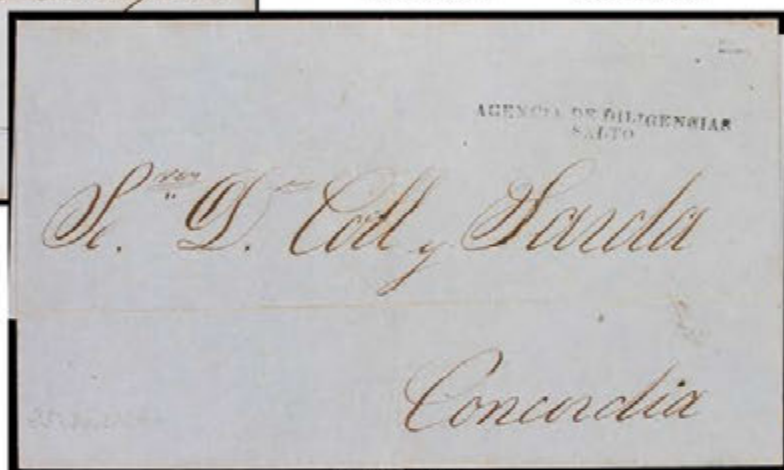 AGENCIA DE DILIGENCIAS
SALTO
Sres. Dn. Coll y Sarda
Concordia